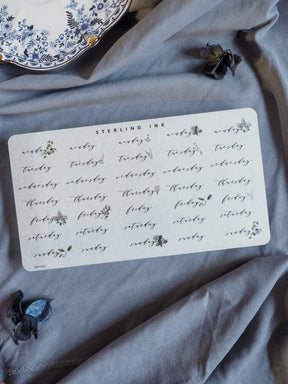 STERLING INK
monday monday monday monday monday
tuesday tuesday tuesday tuesday tuesday
wednesday wednesday wednesday wednesday wednesday
thursday thursday thursday thursday thursday
friday friday friday friday friday
saturday saturday saturday saturday saturday
sunday sunday sunday sunday sunday